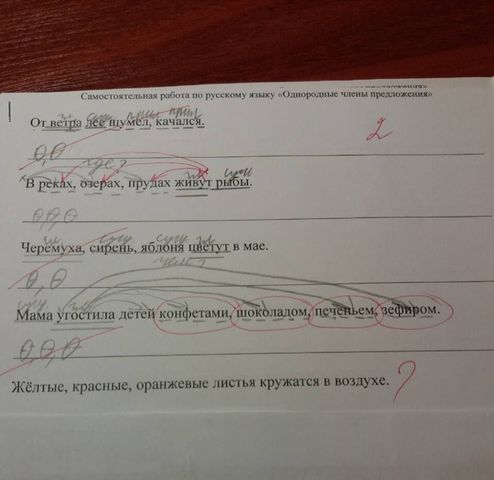 Самостоятельная работа по русскому языку «Однородные члены предложения»
От ветра лес шумел, качался.
2
О, О
где?
В реках, озерах, прудах живут рыбы.
О, О, О
Черемуха, сирень, яблоня цветут в мае.
О, О
чем?
Мама угостила детей конфетами, шоколадом, печеньем, зефиром.
О, О, О
Жёлтые, красные, оранжевые листья кружатся в воздухе. ?